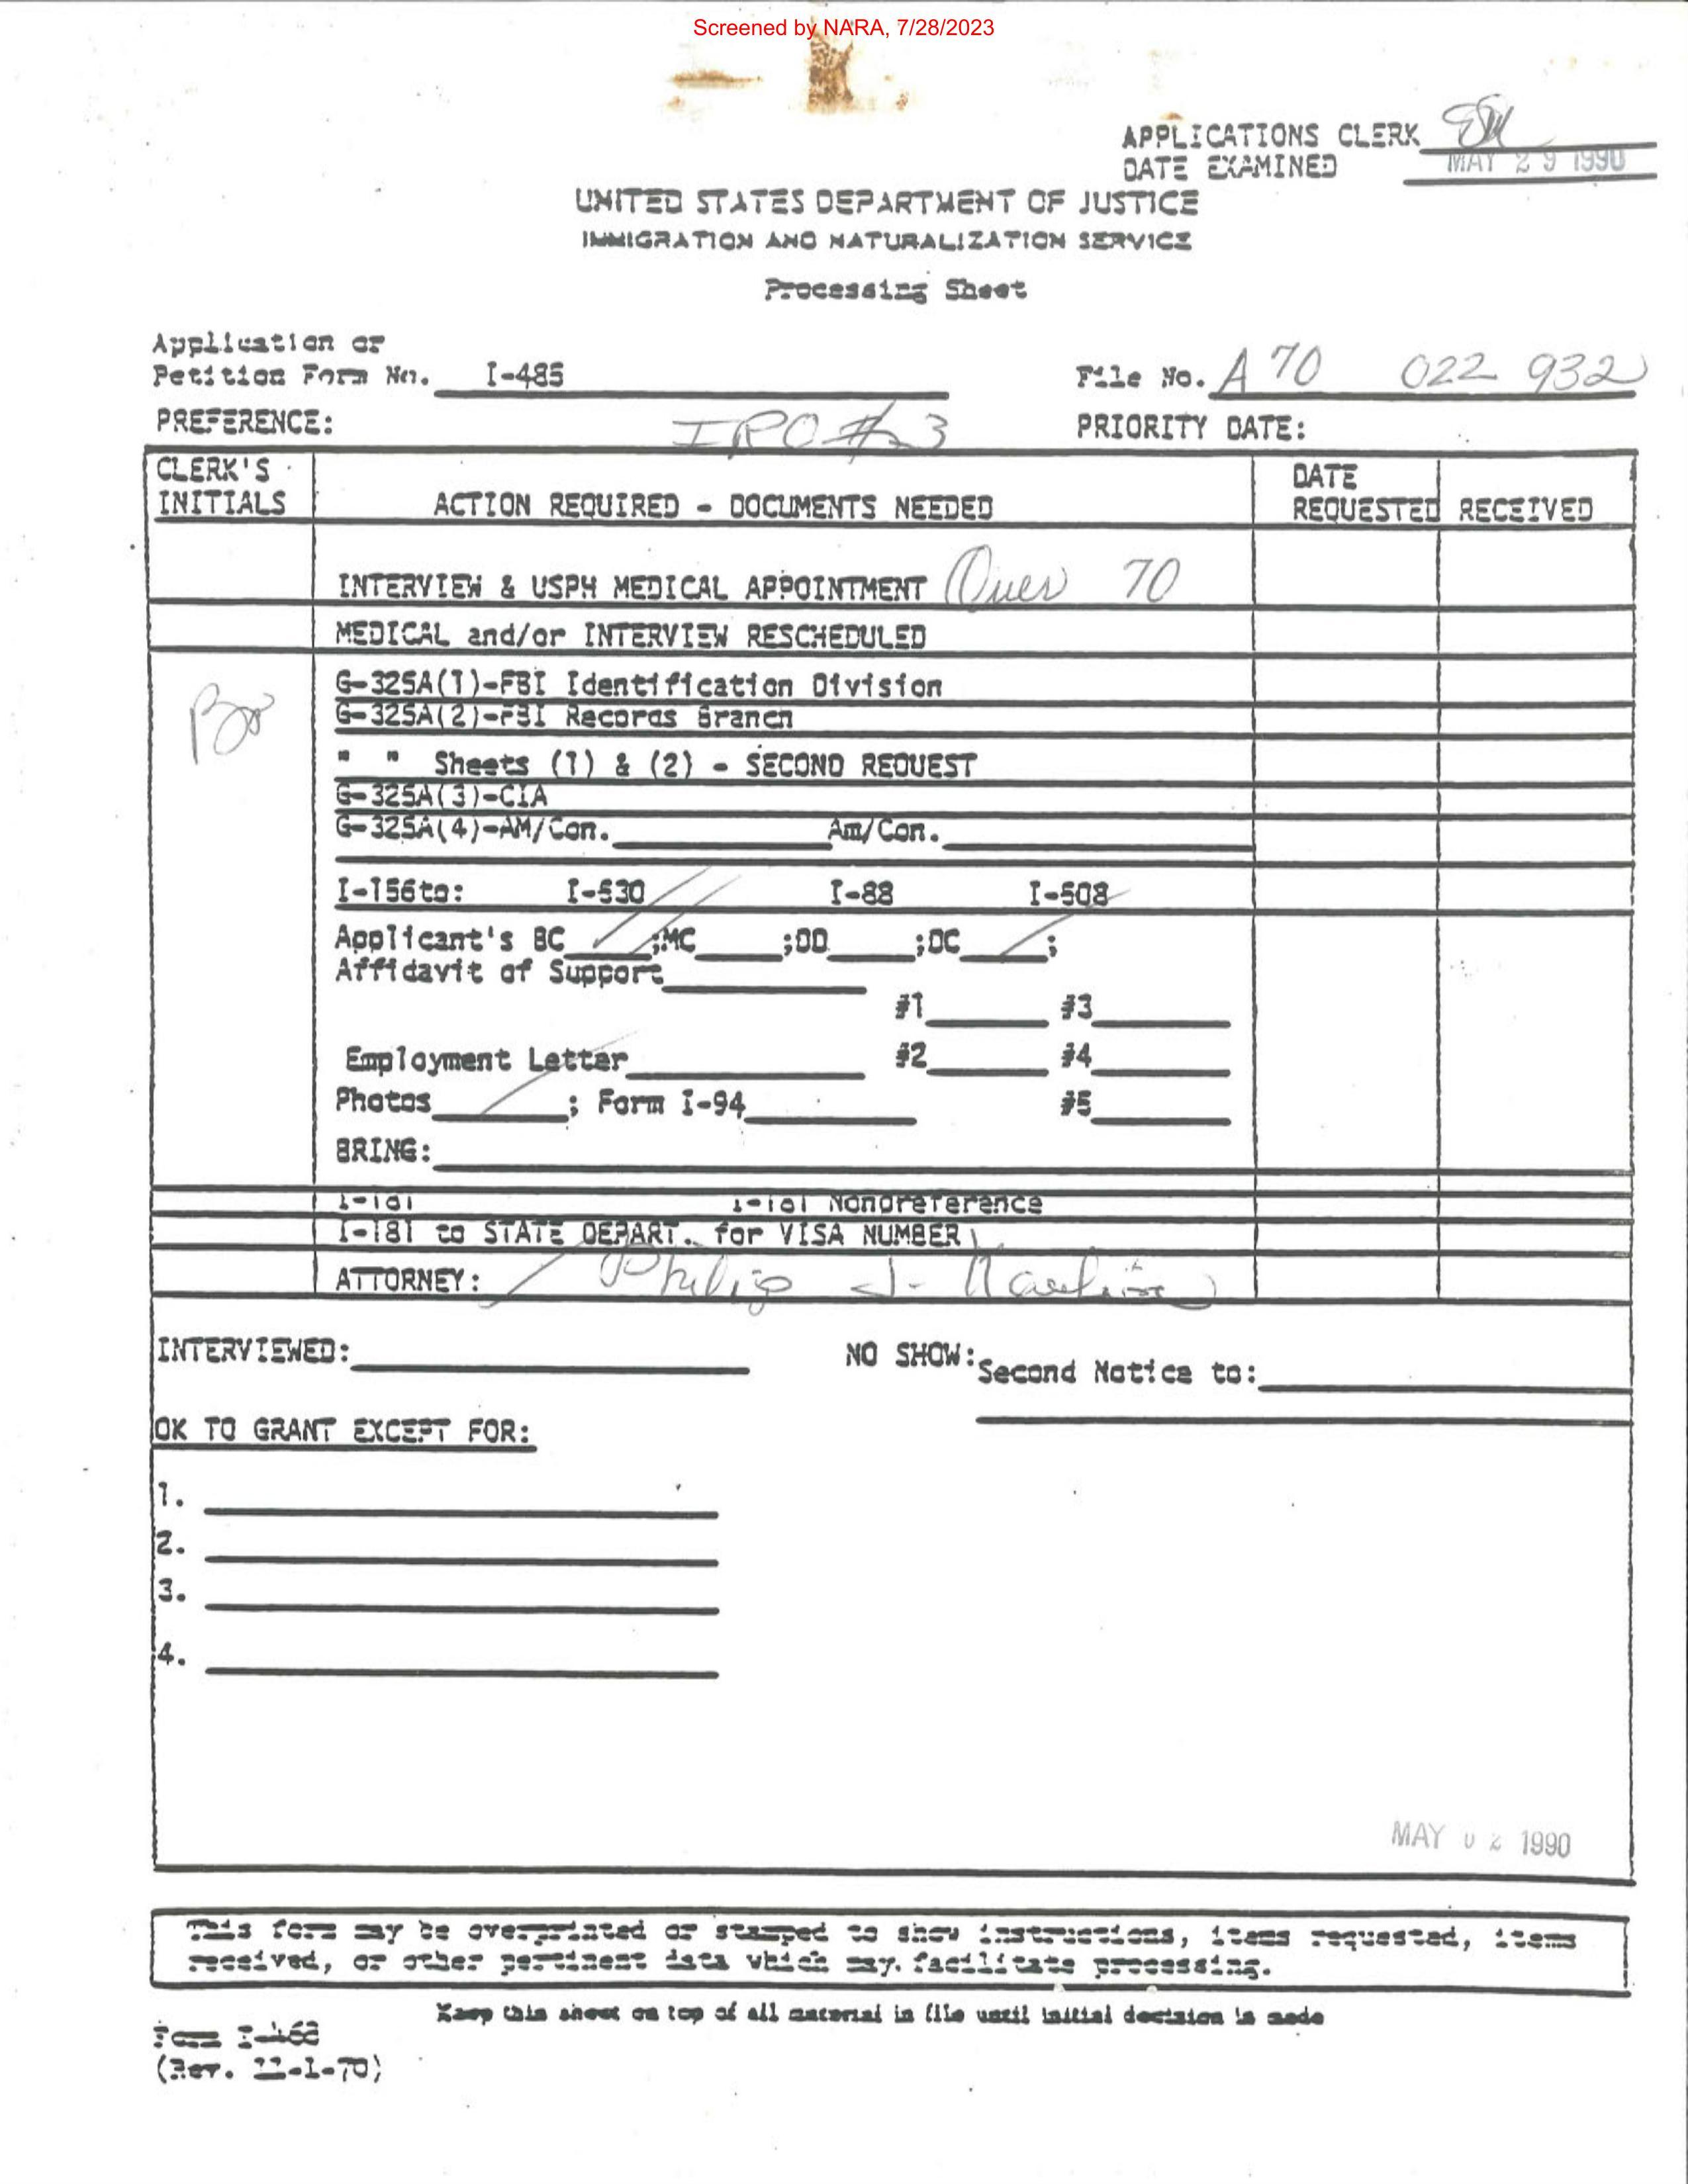 Screened by NARA, 7/28/2023
APPLICATIONS CLERK
DATE EXAMINED MAY 29 1990
UNITED STATES DEPARTMENT OF JUSTICE
IMMIGRATION AND NATURALIZATION SERVICE
Processing Sheet
Application or
Petition Form No. I-485 File No. A 70 022 932
PREFERENCE: PRIORITY DATE:
CLERK'S DATE
INITIALS ACTION REQUIRED - DOCUMENTS NEEDED REQUESTED RECEIVED
INTERVIEW & USPH MEDICAL APPOINTMENT Over 70
MEDICAL and/or INTERVIEW RESCHEDULED
G-325A(1)-FBI Identification Division
G-325A(2)-FBI Records Branch
" " Sheets (1) & (2) - SECOND REQUEST
G-325A(3)-CIA
G-325A(4)-AM/Con. Am/Con.
I-156to: I-530 I-88 I-508
Applicant's BC ;MC ;DD ;DC ;
Affidavit of Support
#1 #3
Employment Letter #2 #4
Photos ; Form I-94 #5
BRING:
I-181 I-181 Nonpreference
I-181 to STATE DEPART. for VISA NUMBER
ATTORNEY: Philip J.
INTERVIEWED: NO SHOW: Second Notice to:
OK TO GRANT EXCEPT FOR:
1.
2.
3.
4.
MAY 02 1990
This form may be overprinted or stamped to show instructions, items requested, items
received, or other pertinent data which may. facilitate processing.
Keep this sheet on top of all material in file until initial decision is made
Form I-468
(Rev. 11-1-70)